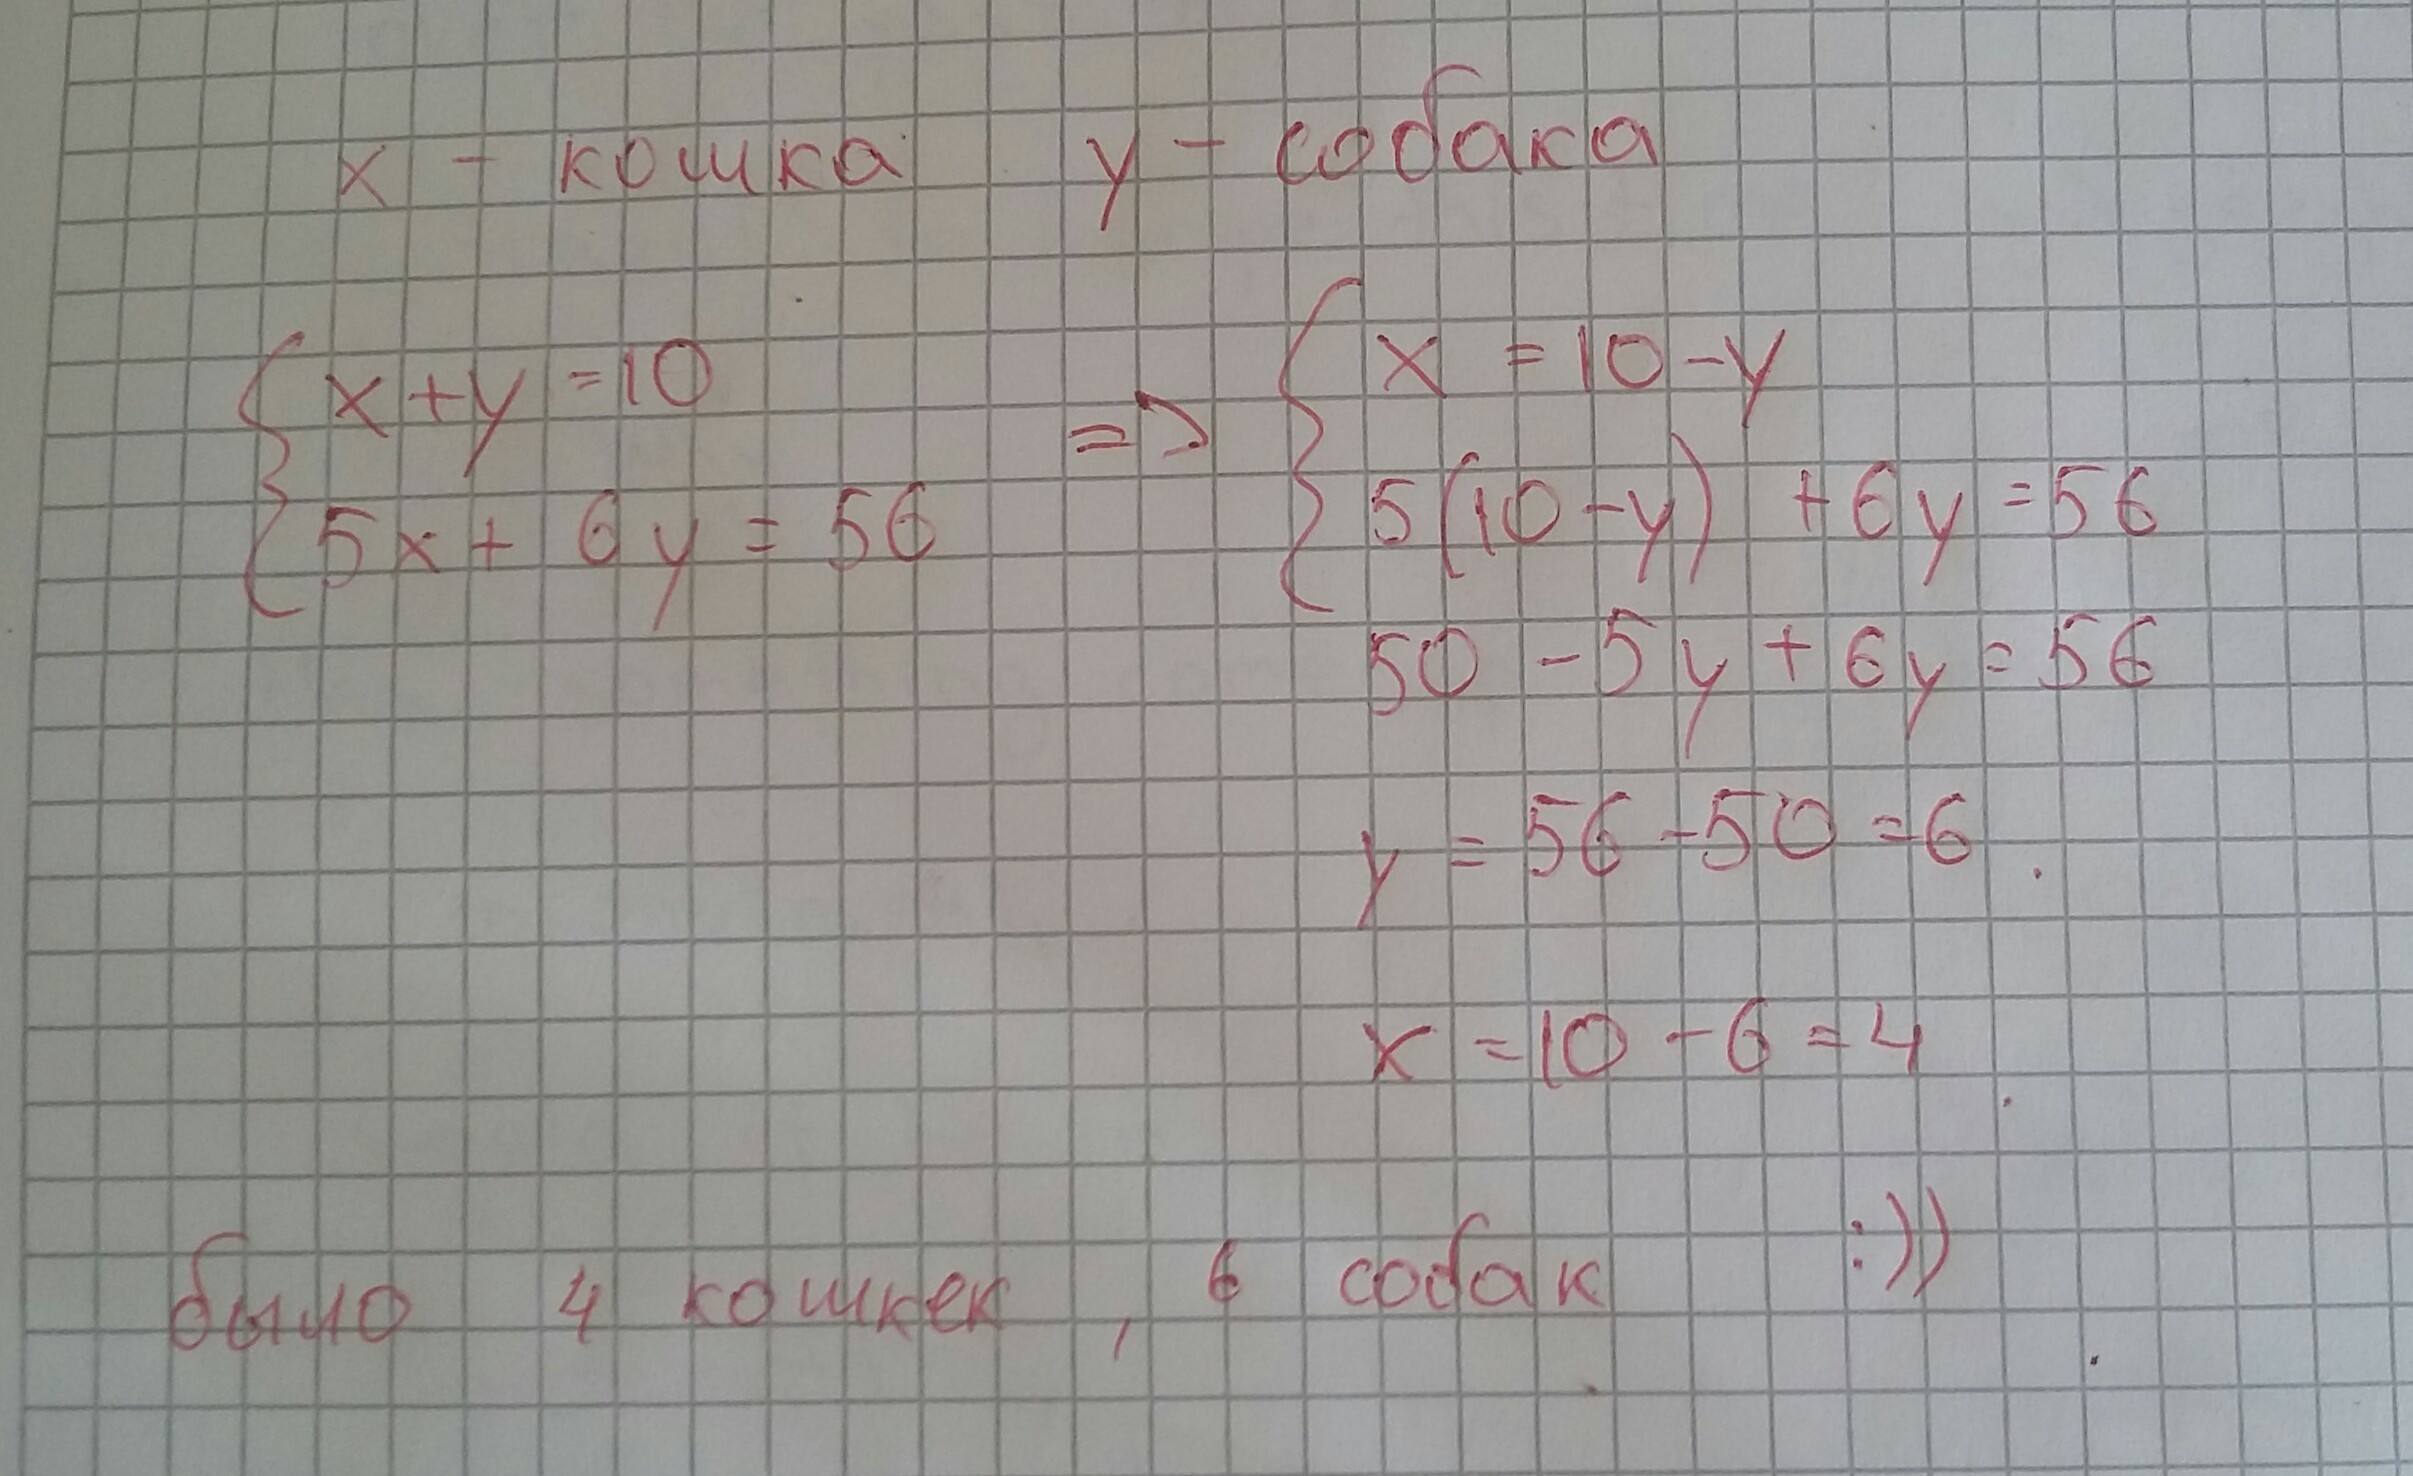 x - кошка y - собака
{ x + y = 10 => { x = 10 - y
5x + 6y = 56 5(10 - y) + 6y = 56
50 - 5y + 6y = 56
y = 56 - 50 = 6
x = 10 - 6 = 4
было 4 кошкек , 6 собак :))